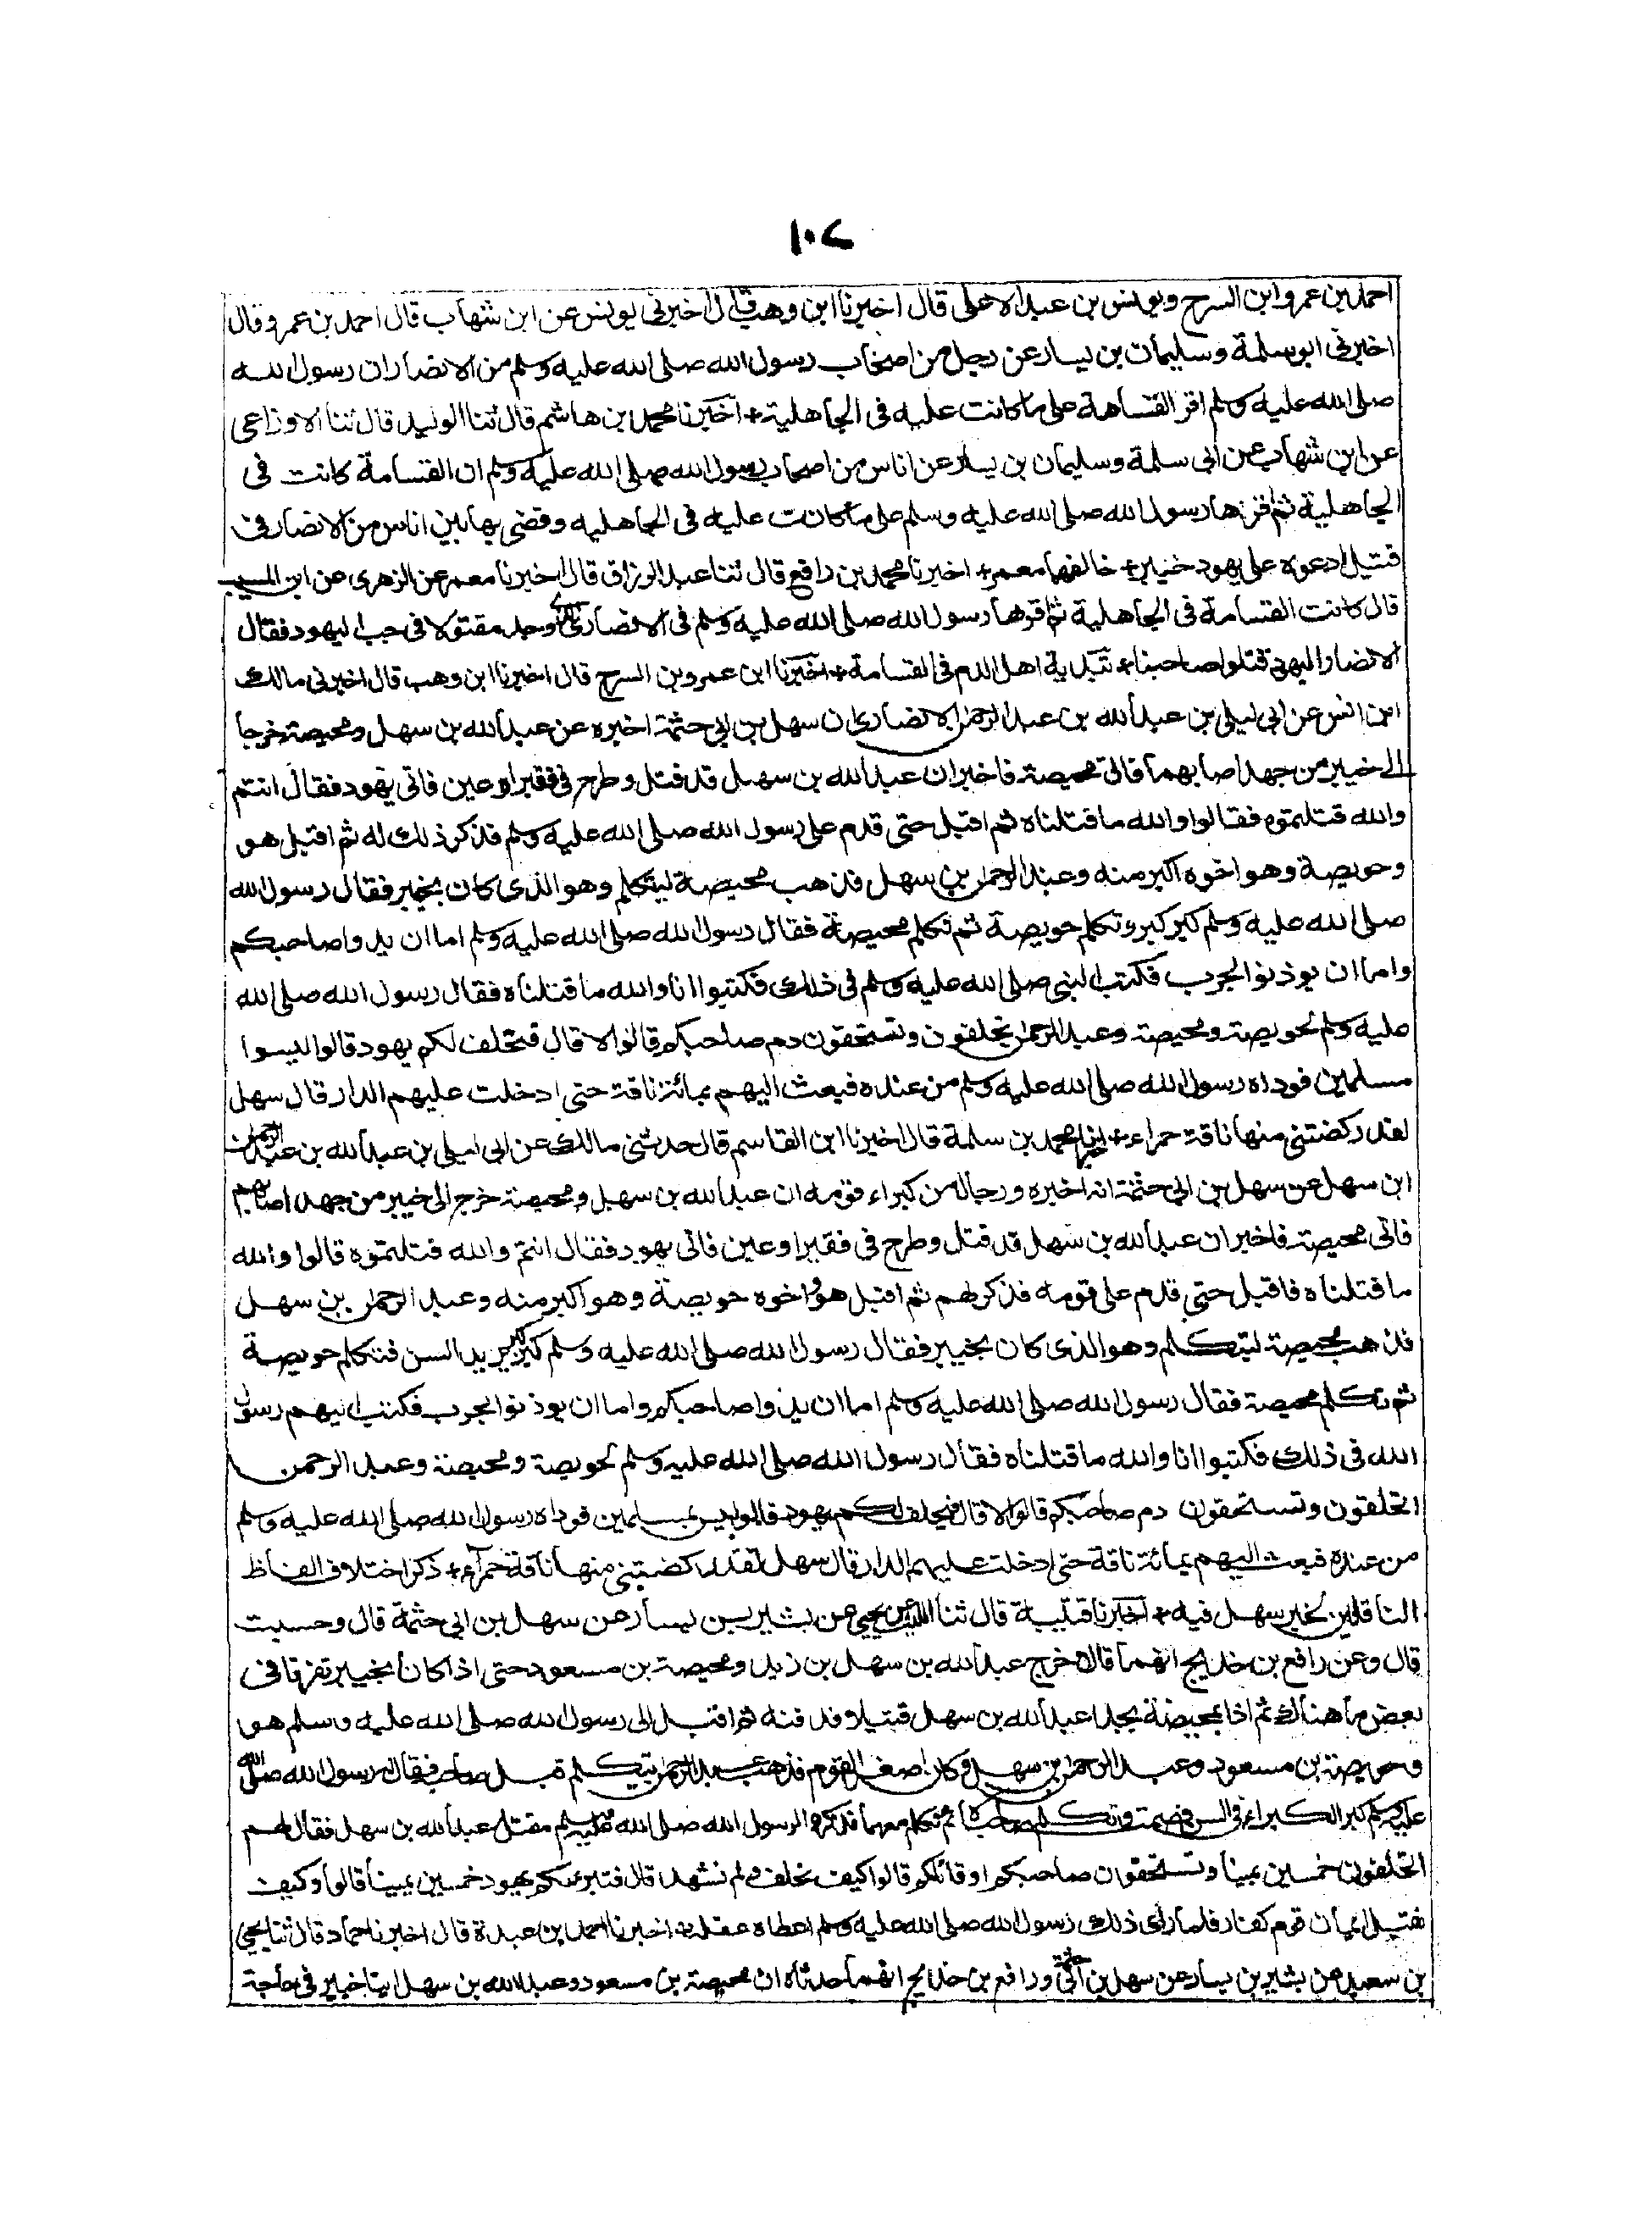 ١٠٧
احمد بن عمرو ابن السرح ويونس بن عبد الاعلى قال اخبرنا ابن وهب قال اخبرنى يونس عن ابن شهاب قال احمد بن عمرو قال
اخبرنى ابو سلمة وسليمان بن يسار عن رجل من اصحاب رسول الله صلى الله عليه وسلم من الانصار ان رسول الله
صلى الله عليه وسلم اقر القسامة على ما كانت عليه فى الجاهلية + اخبرنا محمد بن هاشم قال ثنا الوليد قال ثنا الاوزاعى
عن ابن شهاب عن ابى سلمة وسليمان بن يسار عن اناس من اصحاب رسول الله صلى الله عليه وسلم ان القسامة كانت فى
الجاهلية ثم اقرها رسول الله صلى الله عليه وسلم على ما كانت عليه فى الجاهليه وقضى بها بين اناس من الانصار فى
قتيل ادعوه على يهود خيبر + خالفهما معمر + اخبرنا محمد بن رافع قال ثنا عبد الرزاق قال اخبرنا معمر عن الزهرى عن ابن المسيب
قال كانت القسامة فى الجاهلية ثم اقرها رسول الله صلى الله عليه وسلم فى الانصارى الذى وجد مقتولا فى جب اليهود فقال
الانصار اليهود قتلوا صاحبنا + تبدية اهل الدم فى القسامة + اخبرنا ابن عمرو بن السرح قال اخبرنا ابن وهب قال اخبرنى مالك
ابن انس عن ابى ليلى بن عبد الله بن عبد الرحمن الانصارى ان سهل بن ابى حثمة اخبره عن عبد الله بن سهل ومحيصة خرجا
الى خيبر من جهد اصابهما فاتى محيصة فاخبر ان عبد الله بن سهل قد قتل وطرح فى فقير او عين فاتى يهود فقال انتم
والله قتلتموه فقالوا والله ما قتلناه ثم اقبل حتى قدم على رسول الله صلى الله عليه وسلم فذكر ذلك له ثم اقبل هو
وحويصة وهو اخوه اكبر منه وعبد الرحمن بن سهل فذهب محيصة ليتكلم وهو الذى كان بخيبر فقال رسول الله
صلى الله عليه وسلم كبر كبر وتكلم حويصة ثم تكلم محيصة فقال رسول الله صلى الله عليه وسلم اما ان يدوا صاحبكم
واما ان يوذنوا الحرب فكتب النبى صلى الله عليه وسلم فى ذلك فكتبوا انا والله ما قتلناه فقال رسول الله صلى الله
عليه وسلم لحويصة ومحيصة وعبد الرحمن تحلفون وتستحقون دم صاحبكم قالوا لا قال فتحلف لكم يهود قالوا ليسوا
مسلمين فوداه رسول الله صلى الله عليه وسلم من عنده فبعث اليهم بمائة ناقة حتى ادخلت عليهم الدار قال سهل
لقد ركضتنى منها ناقة حمراء + اخبرنا محمد بن سلمة قال اخبرنا ابن القاسم قال حدثنى مالك عن ابى ليلى بن عبد الله بن عبد الرحمن
ابن سهل عن سهل بن ابى حثمة انه اخبره ورجال من كبراء قومه ان عبد الله بن سهل ومحيصة خرج الى خيبر من جهد اصابهم
فاتى محيصة فاخبر ان عبد الله بن سهل قد قتل وطرح فى فقير او عين فاتى يهود فقال انتم والله قتلتموه قالوا والله
ما قتلناه فاقبل حتى قدم على قومه فذكر لهم ثم اقبل هو واخوه حويصة وهو اكبر منه وعبد الرحمن بن سهل
فذهب محيصة ليتكلم وهو الذى كان بخيبر فقال رسول الله صلى الله عليه وسلم كبر كبر يريد السن فتكلم حويصة
ثم تكلم محيصة فقال رسول الله صلى الله عليه وسلم اما ان يدوا صاحبكم واما ان يوذنوا بحرب فكتب اليهم رسول
الله فى ذلك فكتبوا انا والله ما قتلناه فقال رسول الله صلى الله عليه وسلم لحويصة ومحيصة وعبد الرحمن
اتحلفون وتستحقون دم صاحبكم قالوا لا قال فتحلف لكم يهود قالوا ليس بمسلمين فوداه رسول الله صلى الله عليه وسلم
من عنده فبعث اليهم بمائة ناقة حتى ادخلت عليهم الدار قال سهل لقد ركضتنى منها ناقة حمراء + ذكر اختلاف الفاظ
الناقلين لخبر سهل فيه + اخبرنا قتيبة قال ثنا الليث عن يحيى عن بشير بن يسار عن سهل بن ابى حثمة قال وحسبت
قال وعن رافع بن خديج انهما قالا خرج عبد الله بن سهل بن زيد ومحيصة بن مسعود حتى اذا كان بخيبر تفرقا فى
بعض ما هنالك ثم اذا بمحيصة يجد عبد الله بن سهل قتيلا فدفنه ثم اقبل الى رسول الله صلى الله عليه وسلم هو
وحويصة بن مسعود وعبد الرحمن بن سهل وكان اصغر القوم فذهب عبد الرحمن يتكلم قبل صاحبيه فقال له رسول الله صلى الله
عليه وسلم كبر الكبر فى السن فصمت وتكلم صاحباه ثم تكلم معهما فذكروا لرسول الله صلى الله عليه وسلم مقتل عبد الله بن سهل فقال لهم
اتحلفون خمسين يمينا وتستحقون صاحبكم او قاتلكم قالوا كيف نحلف ولم نشهد قال فتبرئكم يهود خمسين يمينا قالوا وكيف
نقبل ايمان قوم كفار فلما راى ذلك رسول الله صلى الله عليه وسلم اعطاه عقله + اخبرنا احمد بن عبدة قال اخبرنا حماد قال ثنا يحيى
بن سعيد عن بشير بن يسار عن سهل بن ابى حثمة ورافع بن خديج انهما حدثاه ان محيصة بن مسعود وعبد الله بن سهل اتيا خيبر فى حاجة